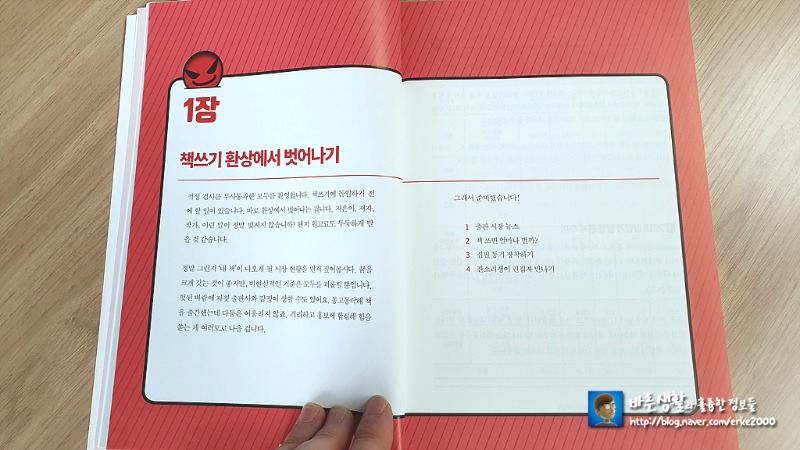 1장
책쓰기 환상에서 벗어나기
적성 검사를 무사통과한 모두를 환영합니다. 책쓰기에 돌입하기 전
에 할 일이 있습니다. 바로 환상에서 벗어나는 겁니다. 지은이, 저자,
작가. 이런 말이 정말 멋지지 않습니까? 왠지 원고료도 두둑하게 받
을 것 같습니다.
정말 그런지 '내 책'이 나오게 될 시장 현황을 먼저 짚어봅시다. 꿈을
크게 갖는 것이 좋지만, 비현실적인 기준은 모두를 괴롭힐 뿐입니다.
헛된 바람에 자칫 출판사와 감정이 상할 수도 있어요. 동고동락해 책
을 출간했는데 다툼은 어울리지 않죠. 격려하고 홍보에 합심해 힘을
쏟는 게 여러모로 나을 겁니다.
그래서 준비했습니다!
1 출판 시장 뉴스
2 책 쓰면 얼마나 벌까?
3 집필 동기 장착하기
4 잔소리쟁이 편집자 만나기
바른생활과 훌륭한 정보들
http://blog.naver.com/erke2000